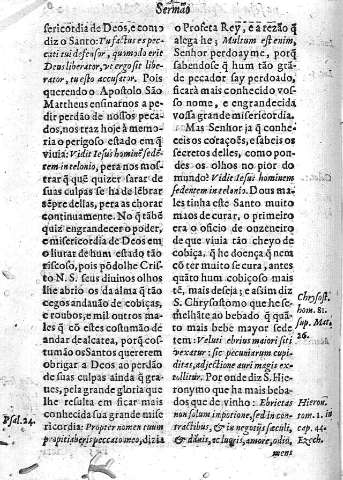 Sermão
sericordia de Deos, e como
diz o Santo: Tu factus es pec
cati tui defensor, quomodo erit
Deus liberator, vt ergo sit libe
rator, tu esto accusator. Pois
querendo o Apostolo São
Mattheus ensinarnos a pe
dir perdão de nossos peca
dos, nos traz hoje â memo
ria o perigoso estado em q̃
viuia: Vidit Iesus hominẽ sedẽ
tem in telonio, pera nos mos
trar q̃ quẽ quizer sarar de
suas culpas se ha de lẽbrar
sẽpre dellas, pera as chorar
continuamente. No q̃ tãbẽ
quiz engrandecer o poder,
e misericordia de Deos em
o liurar de hum estado tão
riscoso, pois põdolhe Cris
to N. S. seus diuinos olhos
lhe abrio os da alma q̃ tão
cegos andauão de cobiças,
e roubos, e mil outros ma
les q̃ cõ estes costumão de
andar de alcatea, porq̃ cos
tumão os Santos quererem
obrigar a Deos ao perdão
de suas culpas ainda q̃ gra
ues, pela grande gloria que
lhe resulta em ficar mais
conhecida sua grande mise
ricordia: Propter nomen tuum
propitiaberis peccato meo, dizia
Psal. 24.
o Profeta Rey, e a rezão q̃
alega he; Multum est enim,
Senhor perdoayme, porq̃
sabendose q̃ hum tão gran
de pecador say perdoado,
ficará mais conhecido vos
so nome, e engrandecida
vossa grande misericordia.
Mas Senhor ja q̃ conhe
ceis os coraçoẽs, e sabeis os
secretos delles, como pon
des os olhos no pior do
mundo? Vidit Iesus hominem
sedentem in telonio. Dous ma
les tinha este Santo muito
maos de curar, o primeiro
era o officio de onzeneiro
de que viuia tão cheyo de
cobiça, q̃ he doença q̃ nem
cõ ter muito se cura, antes
quãto hum cobiçoso mais
tẽ, mais deseja; e assim diz
S. Chrysostomo que he se
melhãte ao bebado q̃ quã
to mais bebe mayor sede
tem: Veluti ebrius maiori siti
vexatur: sic pecuniarum cupi
ditas, adjectione auri magis ex
halituit. Por onde diz S. Hie
ronymo que ha mais beba
dos que de vinho: Ebrietas
non solum in potione, sed in con
tractibus, & in negotijs sæculi,
& dãnis, ec lucris, amore, odio,
mens
Chrysost.
hom. 81.
sup. Mat.
26.
Hieron.
tom. 1. in
cap. 44.
Ezech.